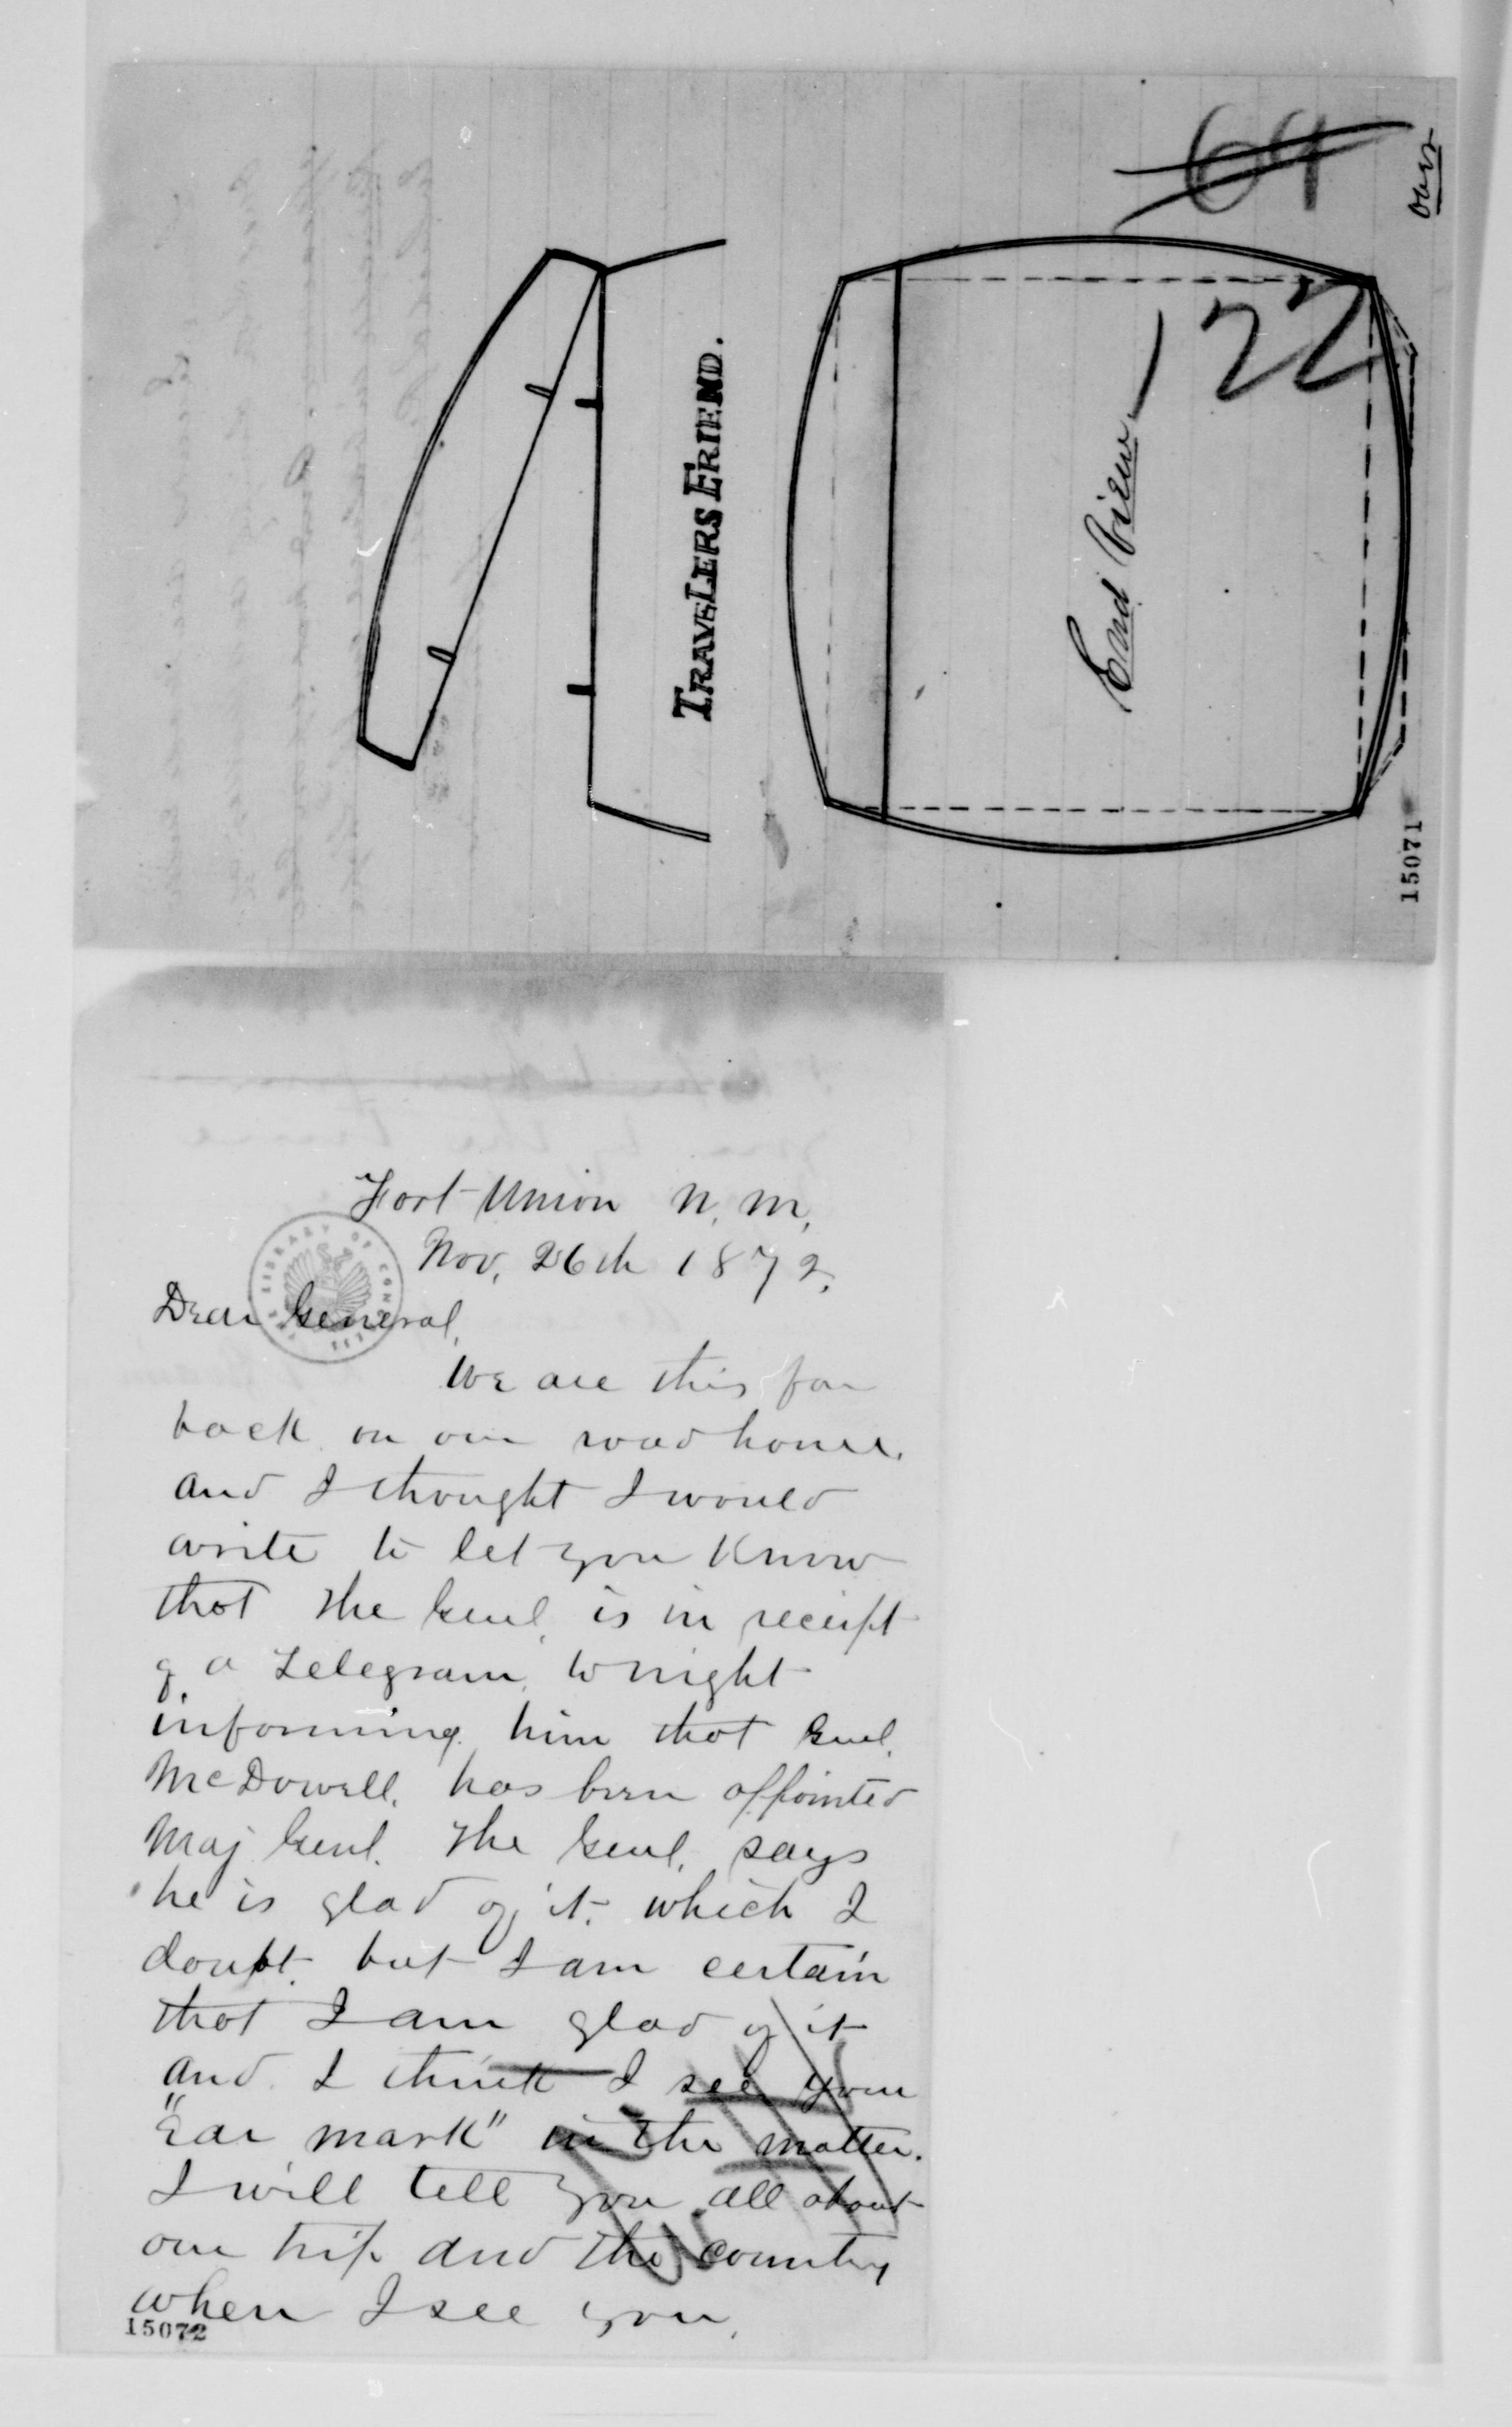 over
69
122
TRAVELERS FRIEND.
End View
15071
Fort Union N. M.
Nov. 26th 1872.
Dear General,
We are this far
back on our road home.
and I thought I would
write to let you know
that the Genl. is in receipt
of a Telegram, to night
informing him that Genl.
McDowell. has been appointed
Maj Genl. The Genl. says
he is glad of it. which I
doubt. but I am certain
that I am glad of it
and I think I see your
"Ear mark" in the matter.
I will tell you all about
our trip and the country
when I see you.
15072
THE LIBRARY OF CONGRESS